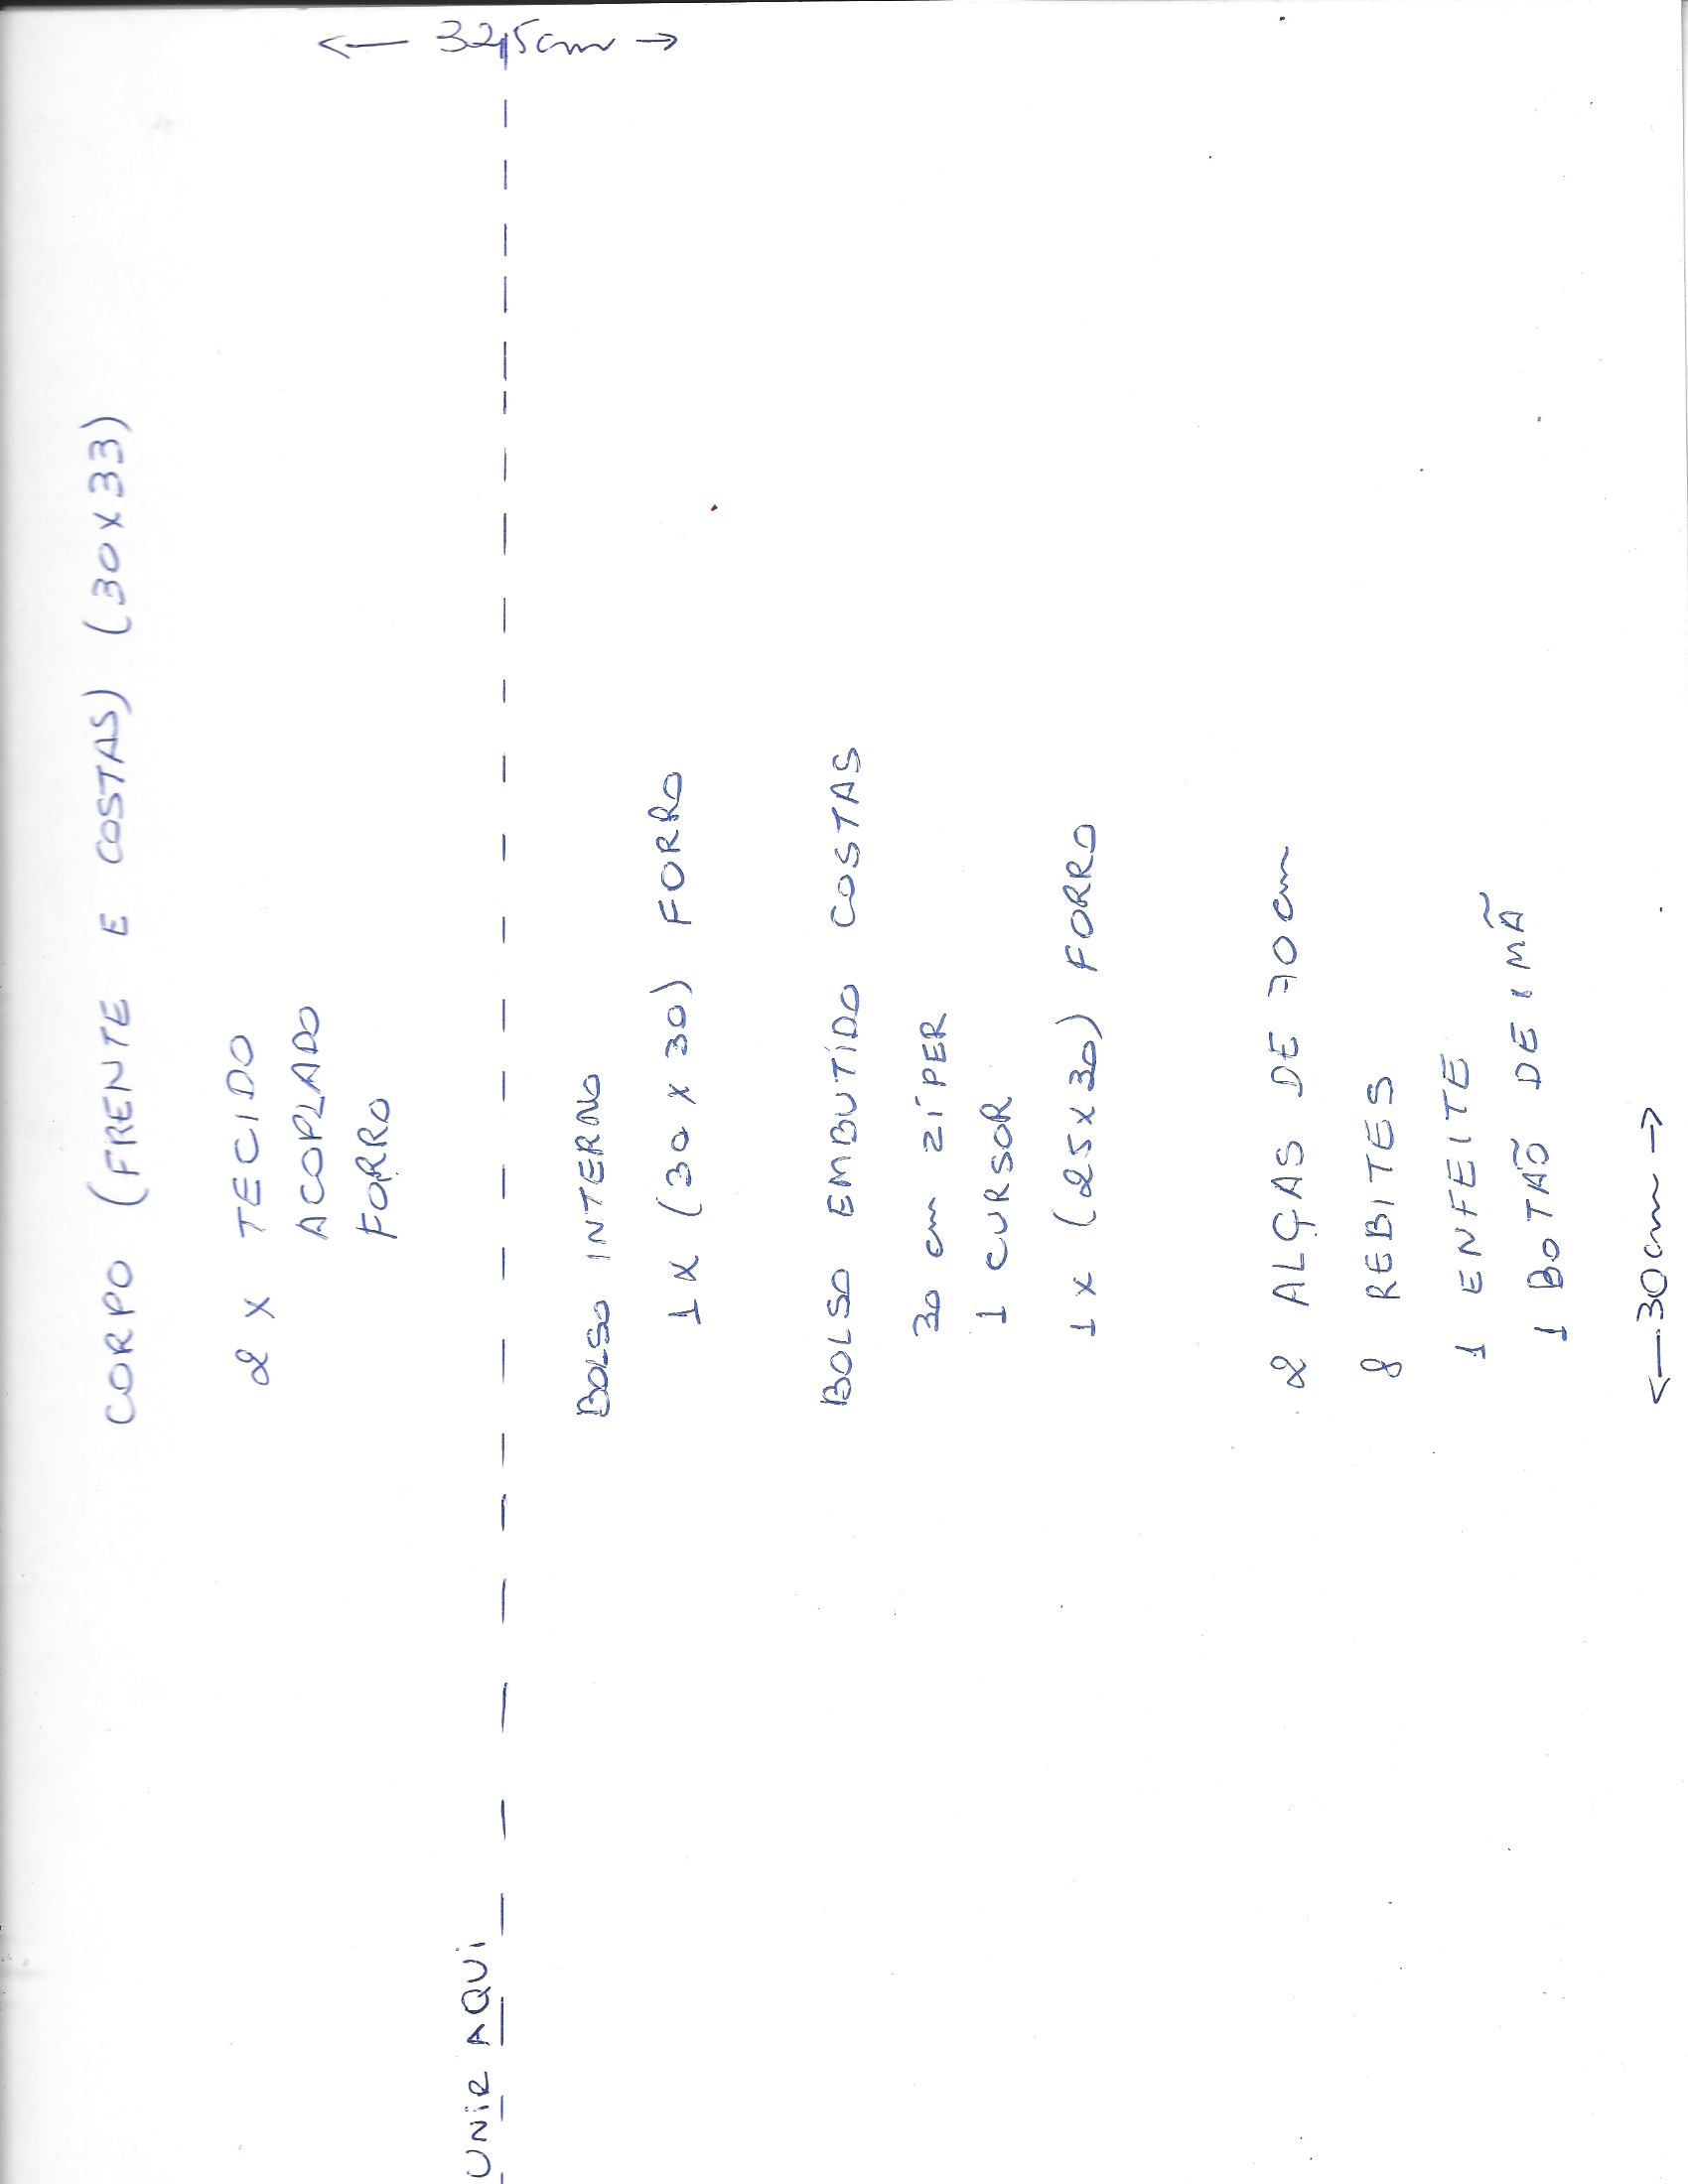 CORPO (FRENTE E COSTAS) (30x33)
2 X TECIDO
ACOPLADO
FORRO
← 32,5cm →
UNIR AQUI
BOLSO INTERNO
1X (30 x 30) FORRO
BOLSO EMBUTIDO COSTAS
30 cm ZÍPER
1 CURSOR
1X (25x30) FORRO
2 ALÇAS DE 70cm
8 REBITES
1 ENFEITE
1 BOTÃO DE IMÃ
← 30cm →